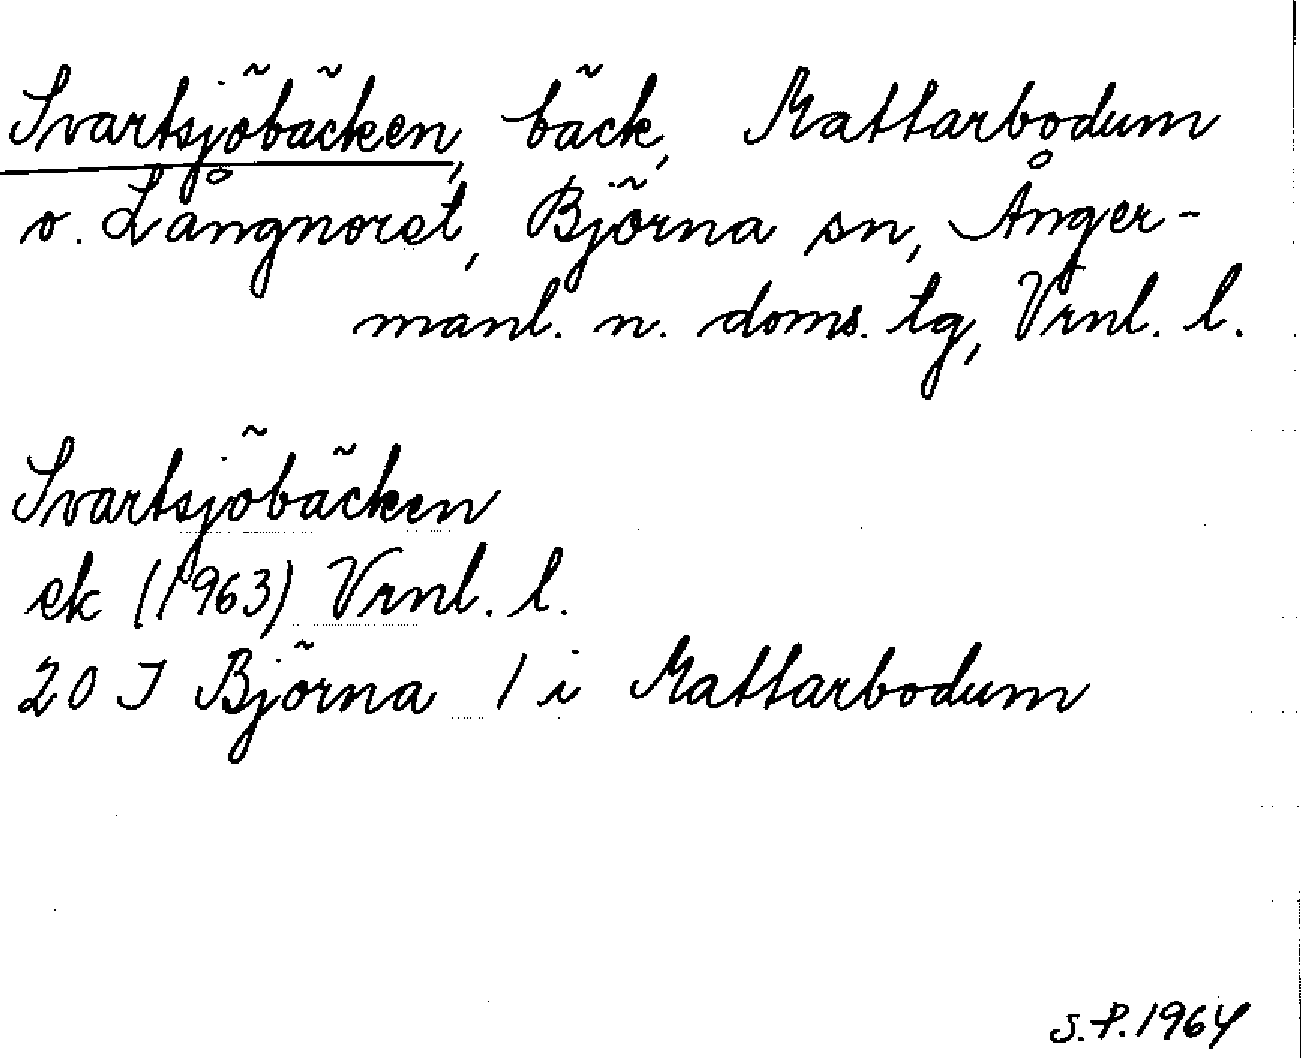 Svartsjöbäcken, bäck, Mattarbodum
o. Långnoret, Björna sn, Ånger-
manl. n. doms. tg, Vrnl. l.
Svartsjöbäcken
ek (1963) Vrnl. l.
20 J Björna 1 i Mattarbodum
S.P. 1964